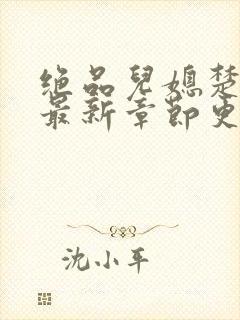 绝品儿媳楚
最新章节更
沈小平